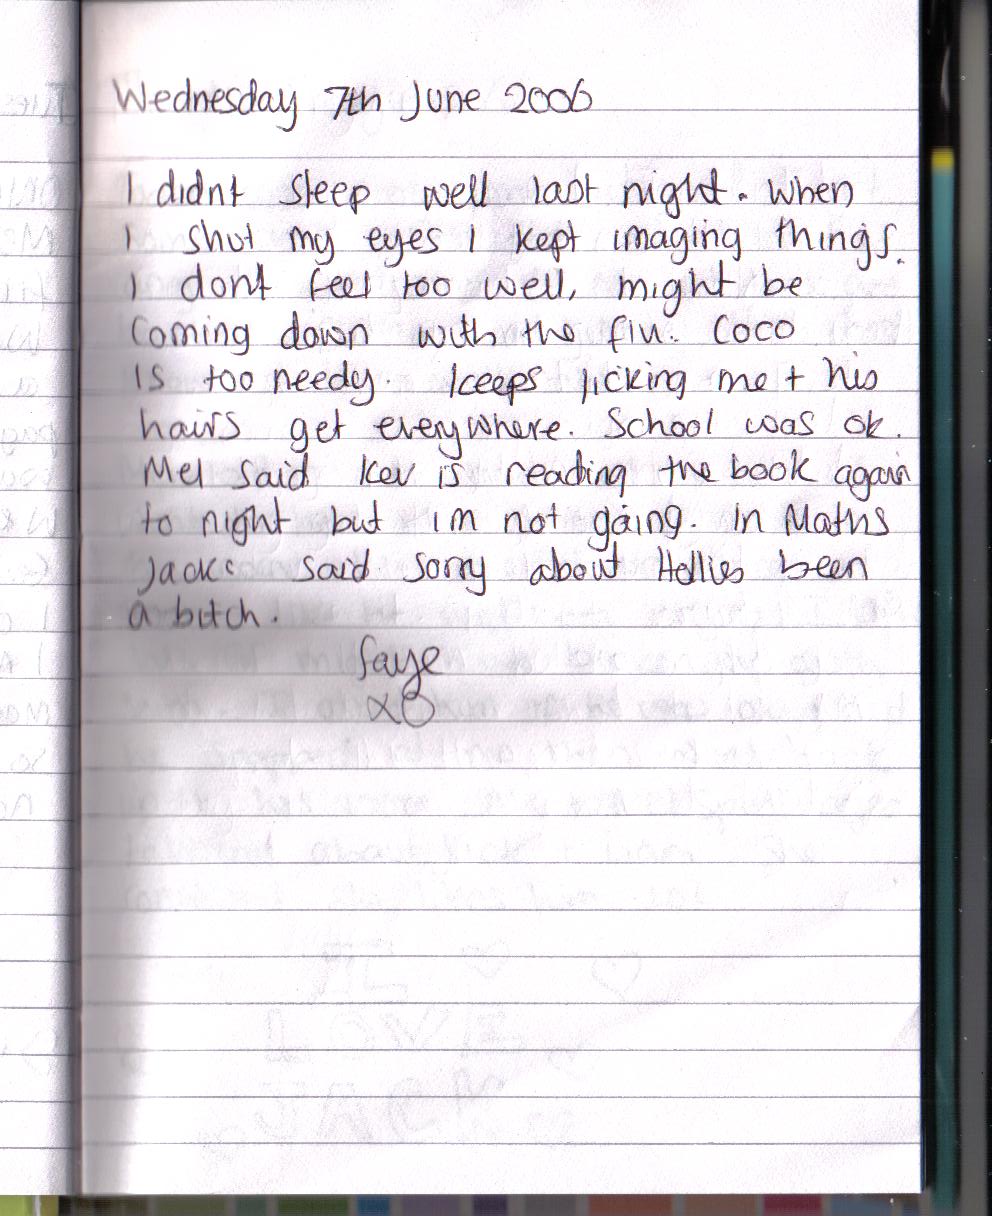 Wednesday 7th June 2006
I didnt sleep well last night. When
I shut my eyes I kept imaging things.
I dont feel too well, might be
coming down with the flu. Coco
is too needy. keeps licking me + his
hairs get everywhere. School was ok.
Mel said Kev is reading the book again
to night but im not going. In Maths
Jack said sorry about Hollies been
a bitch.
faye
xO